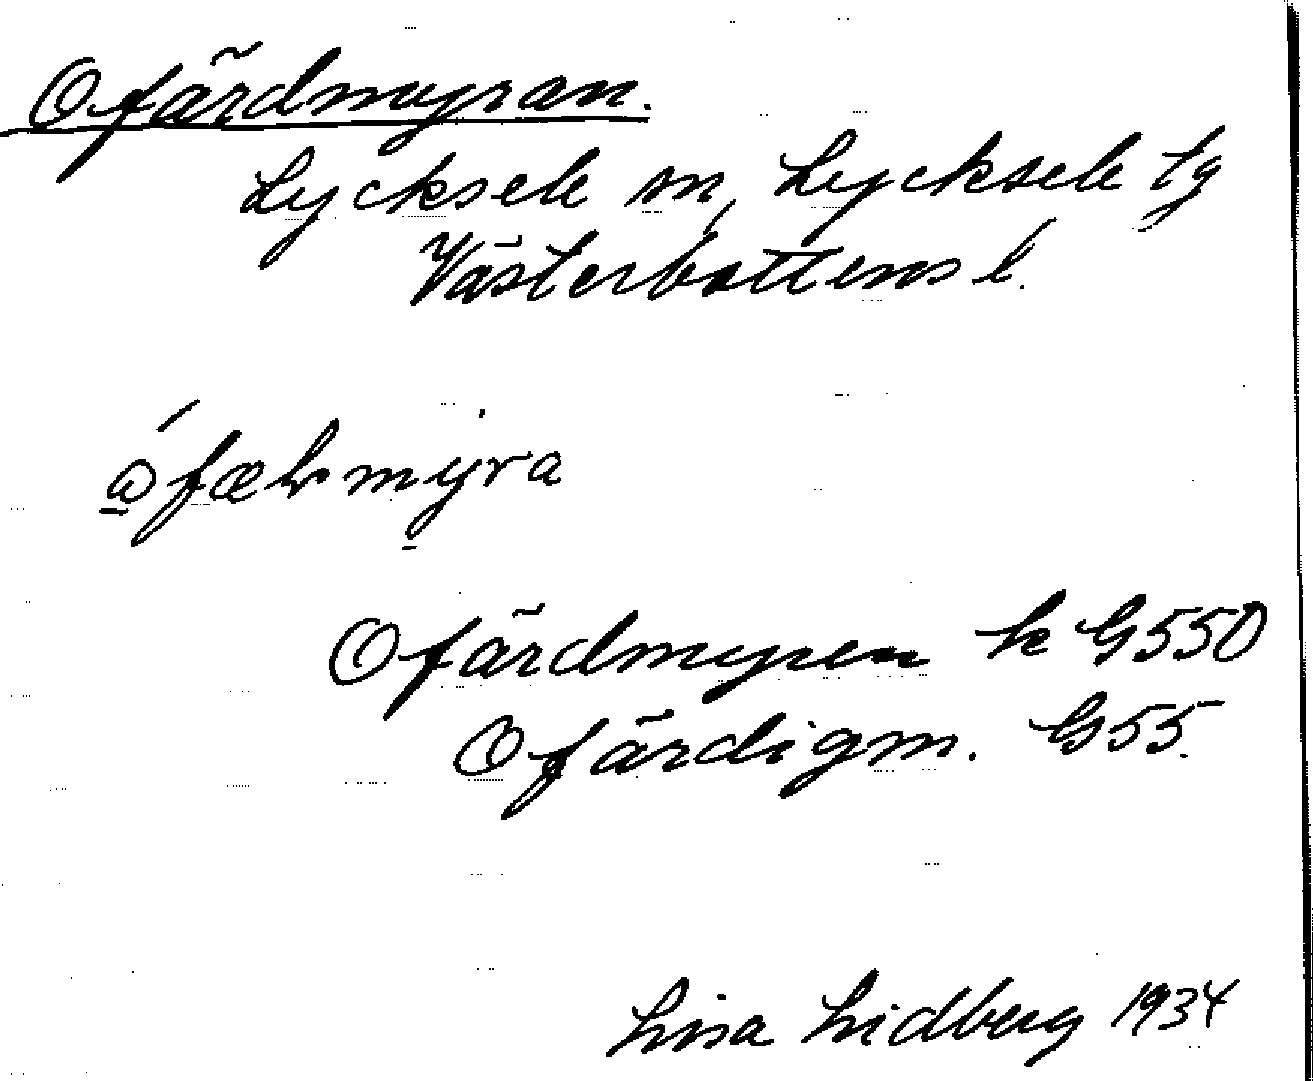 Ofärdmyran.
Lycksele sn, Lycksele tg
Västerbottens l.
Ofärdmyren k G550
Ofärdigm. G55.
Lisa Lidberg 1934